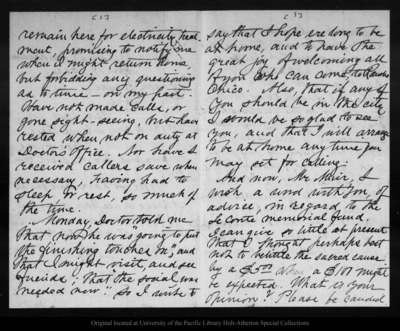 (2)
remain here for electricity treat
ment, promising to notify me
when I might return home,
but forbidding any questioning
as to time — on my part.
Have not made calls, or
gone sight-seeing, but have
rested when not on duty at
Doctor's Office. Nor have I
received callers save when
necessary, having had to
sleep or rest, so much of
the time.
Monday, Doctor told me
that now he was "going to put
the finishing touches on", and
that I might visit, and see
friends; that "the social was
needed now". So I write to
(3)
say that I hope ere long to be
at home, and to have the
great joy of welcoming all
of you who can come, to Rancho
Chico. Also, that if any of
you should be in the city
I would be so glad to see
you, and that I will arrange
to be at home any time you
may set for calling.
And now, Mr. Muir, I
wish a word with you, of
advice, in regard, to the
Le Conte memorial fund.
I can give so little at present
that I thought perhaps best
not to belittle the sacred cause
by a $5.00 when a $100 might
be expected. What is your
opinion? Please be candid
Original located at University of the Pacific Library Holt-Atherton Special Collections